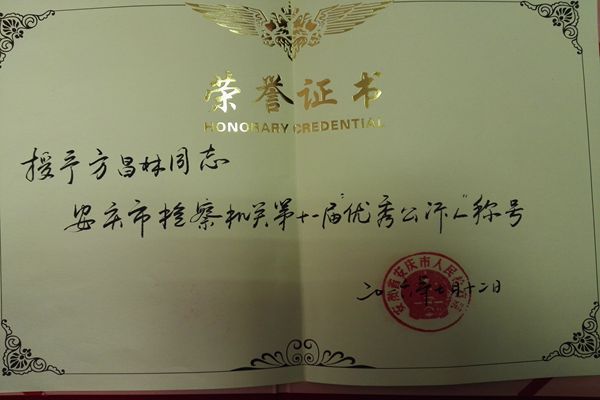 荣誉证书
HONORARY CREDENTIAL
授予方昌林同志
安庆市检察机关第十一届"优秀公诉人"称号
二〇一六年七月十二日
安徽省安庆市人民检察院